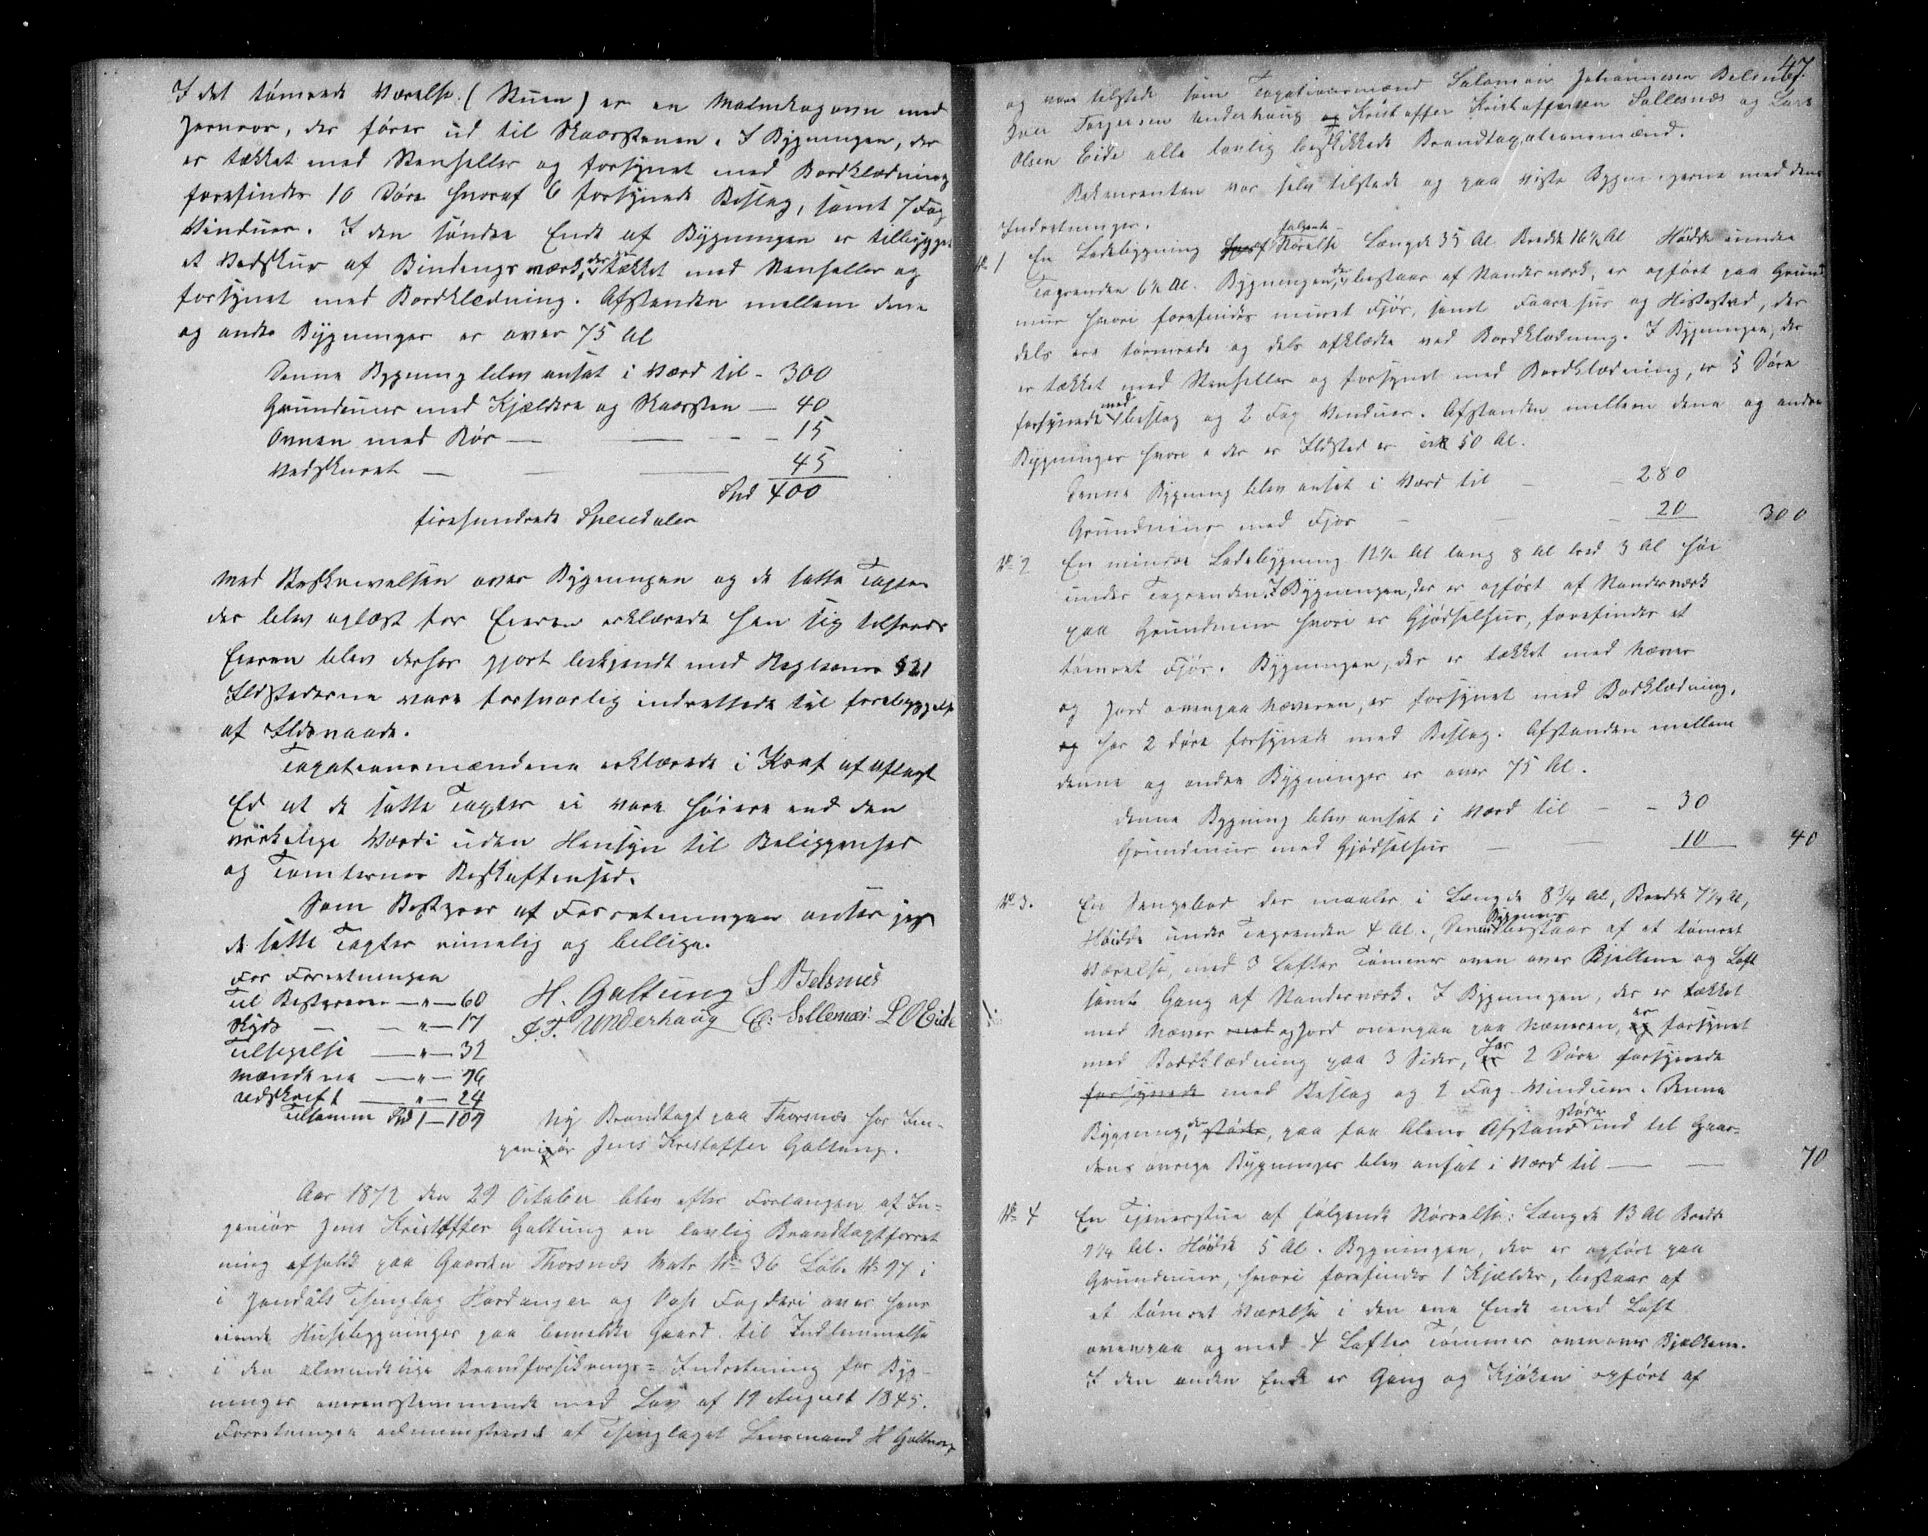 I det tømrede Værelse (Stuen) er en Malmkagovn med
Jernrør, der fører ud til Skorstenen. I Bygningen, der
er tækket med Stenheller og forsynet med Bordklædning
forefindes 10 Døre hvoraf 6 forsynede Beslag, samt 7 Fag
Vinduer. I den søndre Ende af Bygningen er tilbygget
et Vedskur af Bindingsværk, der er tækket med Stenheller og
forsynet med Bordklædning. Afstanden mellem denne
og andre Bygninger er over 75 Al
Denne Bygning blev ansat i Værd til - 300
Grundmur med Kjældere og Skorsten — 40
Ovnen med Rør — — - - 15
Vedskuret — — — 45
Spd 400
firehundrede Speciedaler
Med Beskrivelsen over Bygningen og de satte Taxter
der blev oplæst for Eieren erklærede han sig tilfreds
Eieren blev derhos gjort bekjendt med Reglerne § 21
Ildstederne vare forsvarlig indrettede til forebyggelse
af Ildsvaade.
Taxationsmændene erklærede i Kraft af aflagt
Ed at de satte Taxter ei vare høiere end den
virkelige Værdi uden Hensyn til Beliggenhed
og Tomternes Beskaffenhed.
Som Bestyrer af Forretningen anser jeg
de satte Taxter rimelig og billige.
For Forretningen
Til Bestyreren — " — 60
H. Galtung S Belsnes
Skyds — — " — 17
J. T. Underhaug C: Sollesnæs: L O Eide
Tilsigelse — " — 32
Mændene — " — 96
Udskrift — " — 24
Tilsammen Spd 1 — 109
Ny Brandtaxt paa Thorsnæs hos In-
geniør Jens Kristoffer Galtung.
Aar 1872 den 29 October blev efter Forlangen af In-
geniør Jens Kristoffer Galtung en lovlig Brandtaxtforret
ning afholdt paa Gaarden Thorsnæs Matr No 36 Løb. No 97 i
i Jondals Thinglag Hardanger og Voss Fogderi over hans
eiende Husebygninger paa bemeldte Gaard til Indlemmelse
i den almindelige Brandforsikrings-Indretning for Byg-
ninger overensstemmende med Lov af 19 August 1845.
Forretningen administreredes af Thinglagets Lensmand H Galtung
47
og vare tilstede som Taxationsmænd Salomon Johannesen Belsnes
Iver Torgersen Underhaug og Kristoffer Kristoffersen Sollesnæs og Lars
Olsen Eide alle lovlig beskikkede Brandtaxationsmænd.
Rekvirenten var selv tilstede og paaviste Bygningerne med dens
Indretninger.
No 1 En Ladebygning hvoraf følgende Størrelse Længde 35 Al Bredde 16½ Al Høide under
Tagrenden 6½ Al. Bygningen, der bestaar af Standerværk, er opført paa Grund
mur hvori forefindes muret Fjøs, samt Faarehus og Hestestad, der
dels ere tømrede og dels afklædte ved Bordklædning. I Bygningen, der
er tækket med Stenheller og forsynet med Bordklædning, er 5 Døre
forsynede med Beslag og 2 Fag Vinduer. Afstanden mellem denne og andre
Bygninger hvori der er Ildsted er 50 Al.
Denne Bygning blev ansat i Værd til — - 280
Grundmur med Fjøs — — - 20 300
No 2 En mindre Ladebygning 12½ Al lang 8 Al bred 3 Al høi
under Tagrenden. I Bygningen, der er opført af Standerværk
paa Grundmur hvori er Gjødselhus, forefindes et
tømret Fjøs. Bygningen, der er tækket med Næver
og Jord ovenpaa Næveren, er forsynet med Bordklædning,
og har 2 døre forsynede med Beslag. Afstanden mellem
denne og andre Bygninger er over 75 Al.
Denne Bygning blev ansat i Værd til — - 30
Grundmur med Gjødselhus — — 10 40
No 3. En Sengebod der maaler i Længde 8¾ Al, Bredde 7¼ Al,
Høide under Tagrenden 4 Al. Denne Bygning bestaar af et tømret
Værelse, med 3 Lofter Tømmer oven over Bjelkene og Loft
samt Gang af Standerværk. I Bygningen, der er tækket
med Næver med og Jord ovenpaa paa Næveren, og er forsynet
med Bordklædning paa 3 Sider, er har 2 Døre forsynede
forsynede med Beslag og 2 Fag Vinduer. Denne
Bygning, der støder, paa faa Alens Afstand støder ind til Gaar-
dens øvrige Bygninger blev ansat i Værd til — — 70
No 4 En Tjenerstue af følgende Størrelse: Længde 13 Al Bredde
9¼ Al. Høide 5 Al. Bygningen, der er opført paa
Grundmur, hvori forefindes 1 Kjælder, bestaar af
et tømret Værelse i den ene Ende med Loft
ovenpaa og med 4 Lofter Tømmer ovenover Bjelkene.
I den anden Ende er Gang og Kjøken opført af